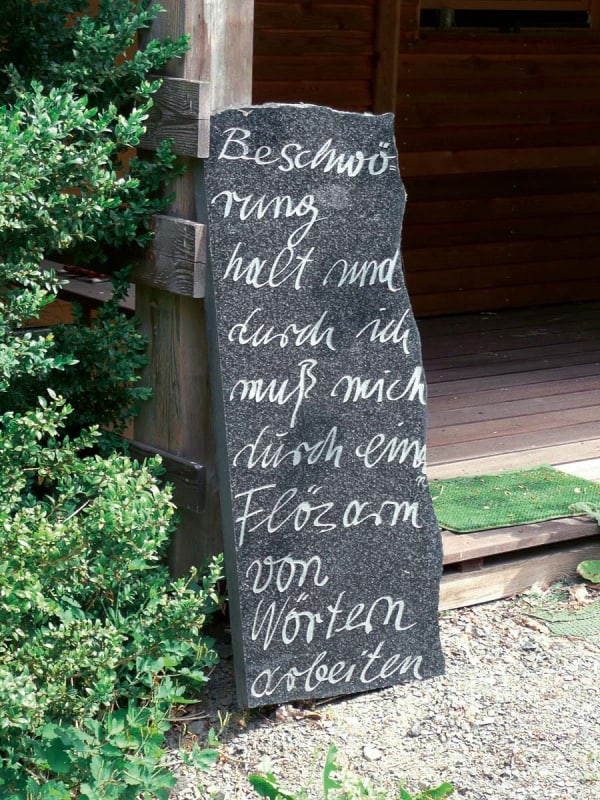 Beschwö-
rung
halt und
durch ich
muß mich
durch ein
Flöz arm
von
Wörtern
arbeiten